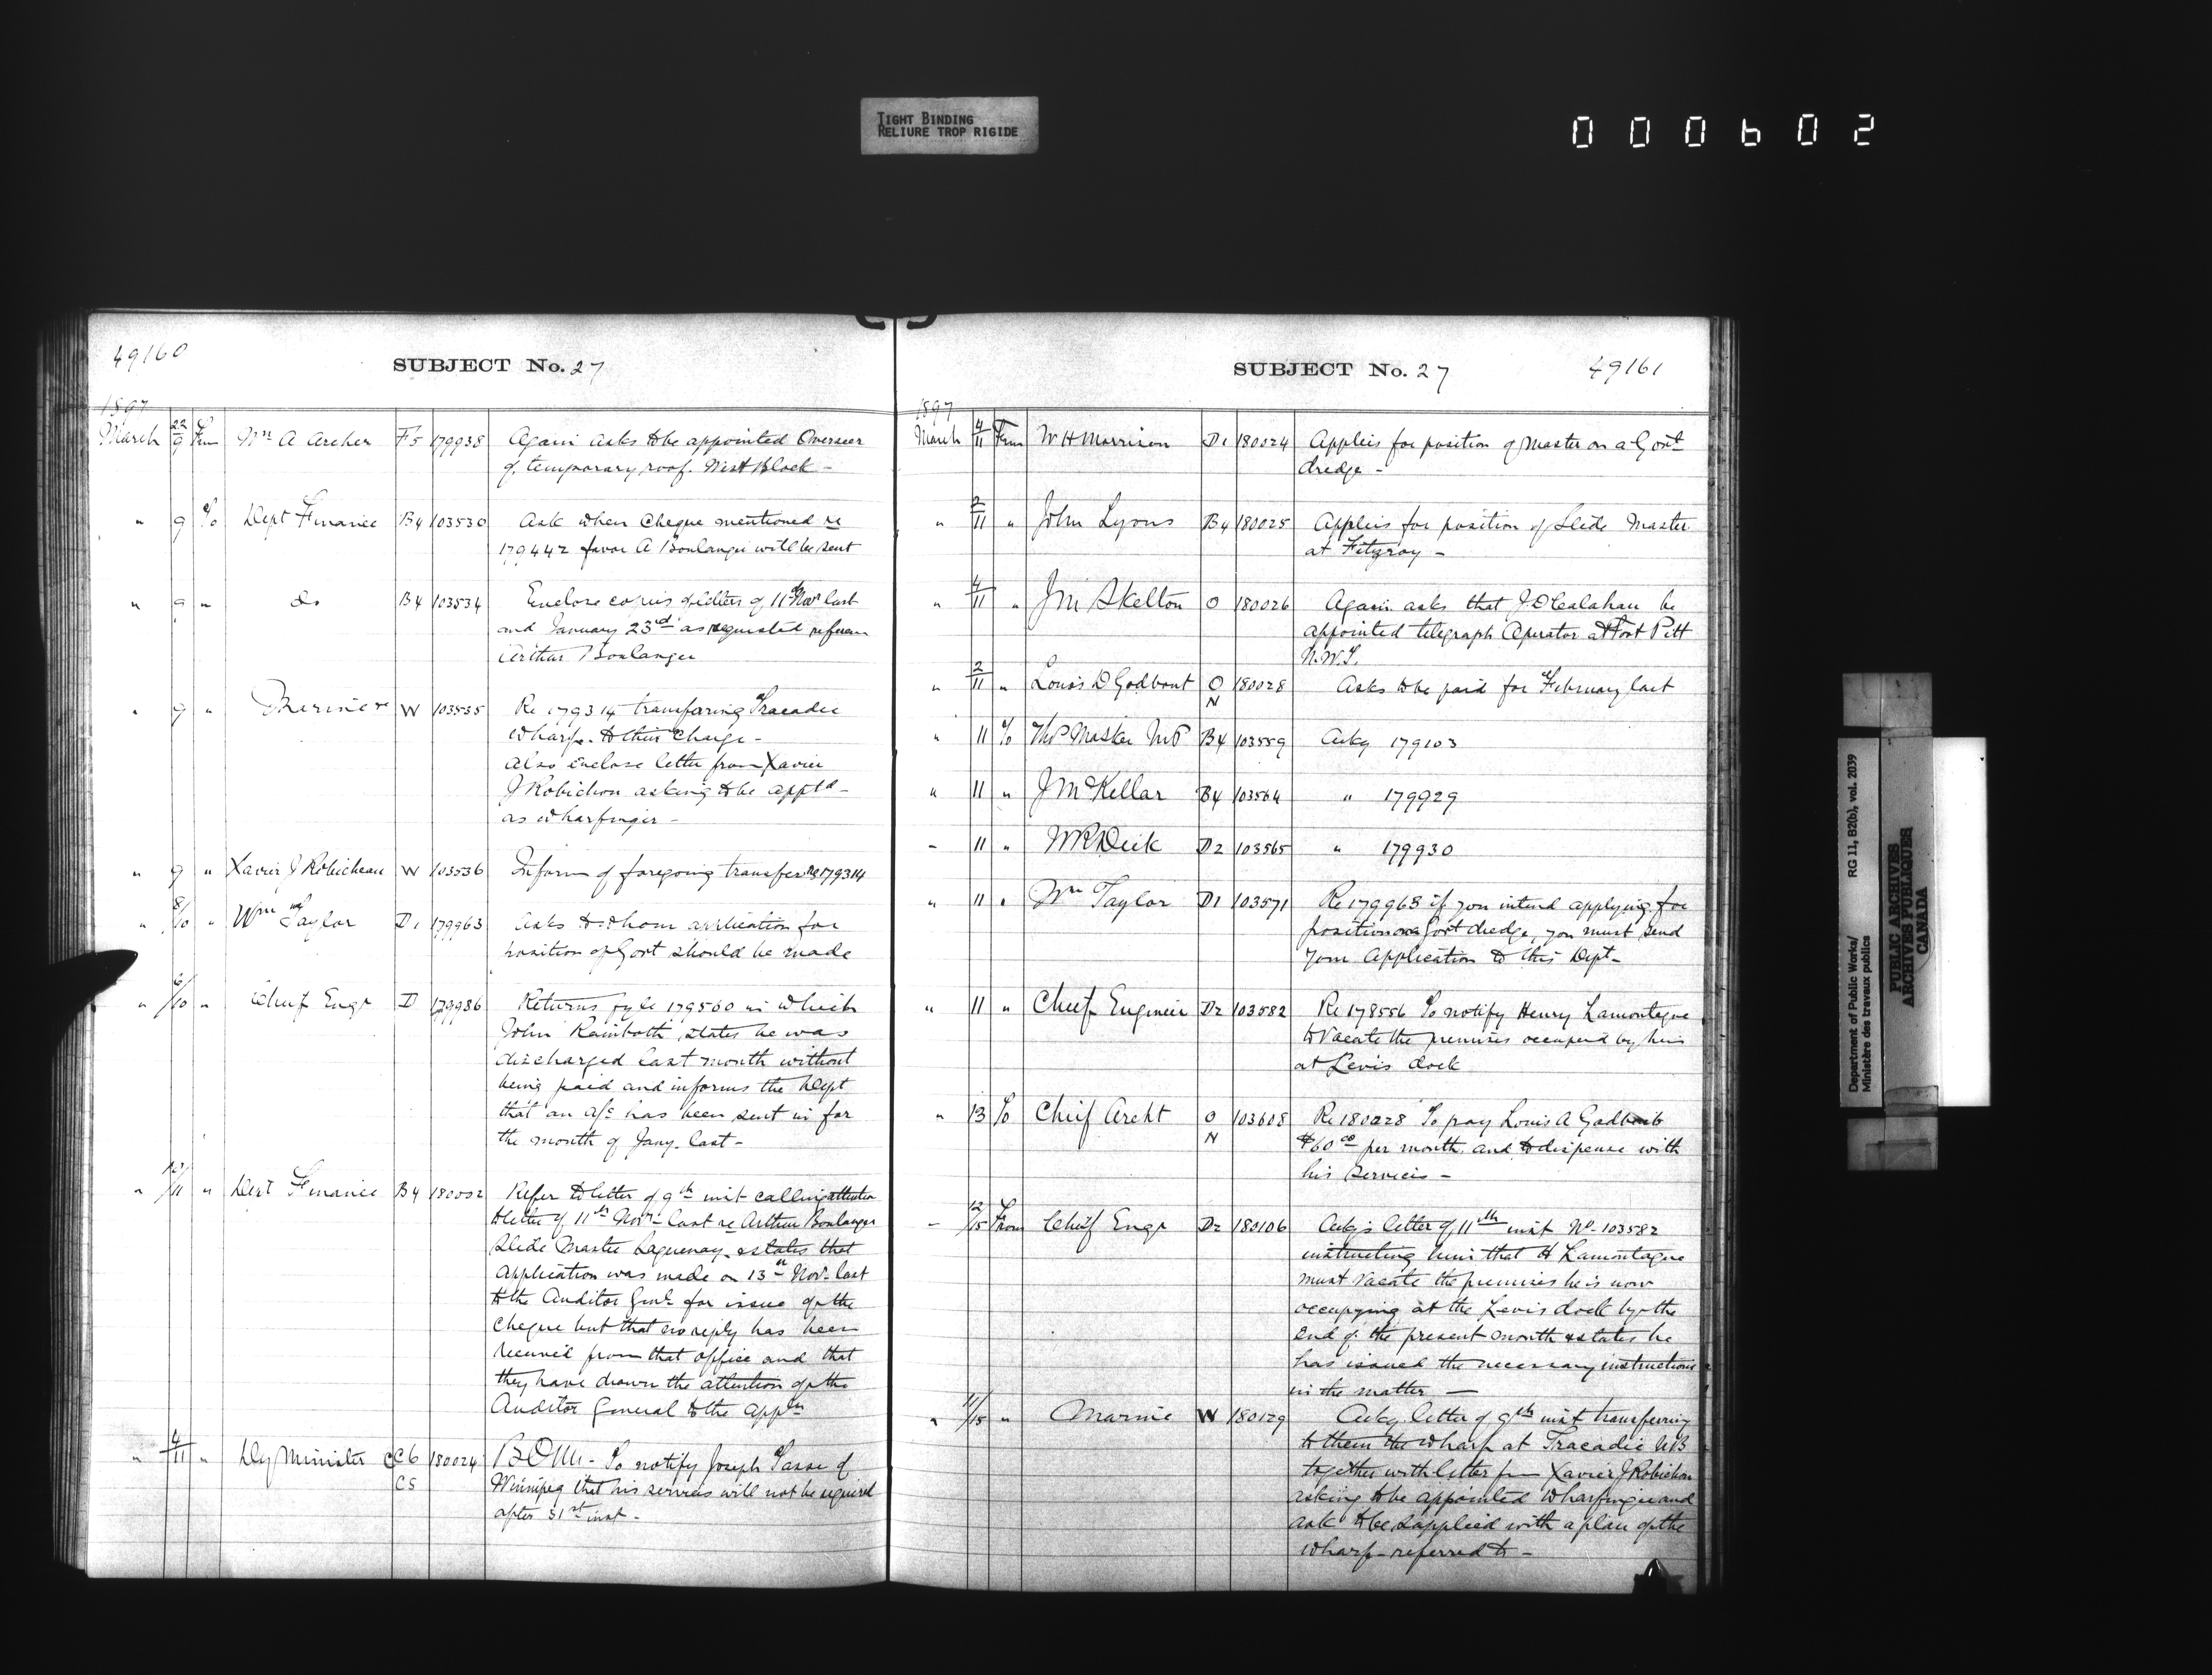 TIGHT BINDING
RELIURE TROP RIGIDE
000602
49160
SUBJECT No. 27
1897
March 22/9 From Wm A Archer F5 179938 Again asks to be appointed Overseer
of temporary roof. West Block -
" 9 To Dept Finance B4 103530 Ask when cheque mentioned re
179442 favor A Boulanger will be sent
" 9 " do B4 103534 Enclose copies of letters of 11th Novr last
and January 23rd as requested referen
Arthur Boulanger
" 9 " Marine W 103535 Re 179314 transferring Tracadie
Wharf - to their charge -
also enclose letter from Xavier
J Robichon asking to be apptd -
as wharfinger -
" 9 " Xavier J Robicheau W 103536 Inform of foregoing transfer re 179314
" 8/10 " Wm Taylor D1 179963 Asks to whom application for
position of Govt should be made
" 6/10 " Chief Engr D 179986 Returns fyle 179560 in which
John Rainboth states he was
discharged last month without
being paid and informs the Dept
that an a/c has been sent in for
the month of Jany. last -
" 10/11 " Dept Finance B4 180002 Refer to letter of 9th inst calling attention
to letter of 11th Novr last re Arthur Boulanger
Slide Master Saguenay. & states that
application was made on 13th Novr last
to the Auditor Genl for issue of the
cheque but that no reply has been
received from that office and that
they have drawn the attention of the
Auditor General to the appln
" 4/11 " Dy Minister CC6 180024 To notify Joseph Tasse of
C5 Winnipeg that his services will not be required
after 31st inst -
SUBJECT No. 27
49161
1897
March 4/11 From W H Morrison D1 180024 Applies for position of Master on a Govt
dredge -
" 2/11 " John Lyons B4 180025 Applies for position of Slide Master
at Fitzroy -
" 4/11 " J M Skelton O 180026 Again asks that J. O'Calahan be
appointed telegraph Operator at Fort Pitt
N.W.T.
" 2/11 " Louis D Godbout O 180028 Asks to be paid for February last
N
" 11 To Thos Master MP B4 103559 Ackg 179103
" 11 " J McKellar B4 103564 " 179929
" 11 " W R Dick D2 103565 " 179930
" 11 " Wm Taylor D1 103571 Re 179963 if you intend applying for
position on a Govt dredge, you must send
your Application to this Dept -
" 11 " Chief Engineer D2 103582 Re 178556 To notify Henry Lamontagne
to vacate the premises occupied by him
at Levis dock
" 13 To Chief Archt O 103608 Re 180028 To pay Louis A Godbout
N $60.00 per month. and to dispense with
his services -
- 12/15 From Chief Engr D2 180106 Ackg letter of 11th inst No. 103582
instructing him that H Lamontagne
must vacate the premises he is now
occupying at the Levis dock by the
end of the present month & states he
has issued the necessary instructions
in the matter -
" 11/15 " Marine W 180129 Ackg letter of 9th inst transferring
to them the wharf at Tracadie NB
together with letter from Xavier J Robichon
asking to be appointed Wharfinger and
ask to be supplied with a plan of the
wharf - referred to -
Department of Public Works/
Ministère des travaux publics
RG 11, B2(b), vol. 2039
PUBLIC ARCHIVES
ARCHIVES PUBLIQUES
CANADA